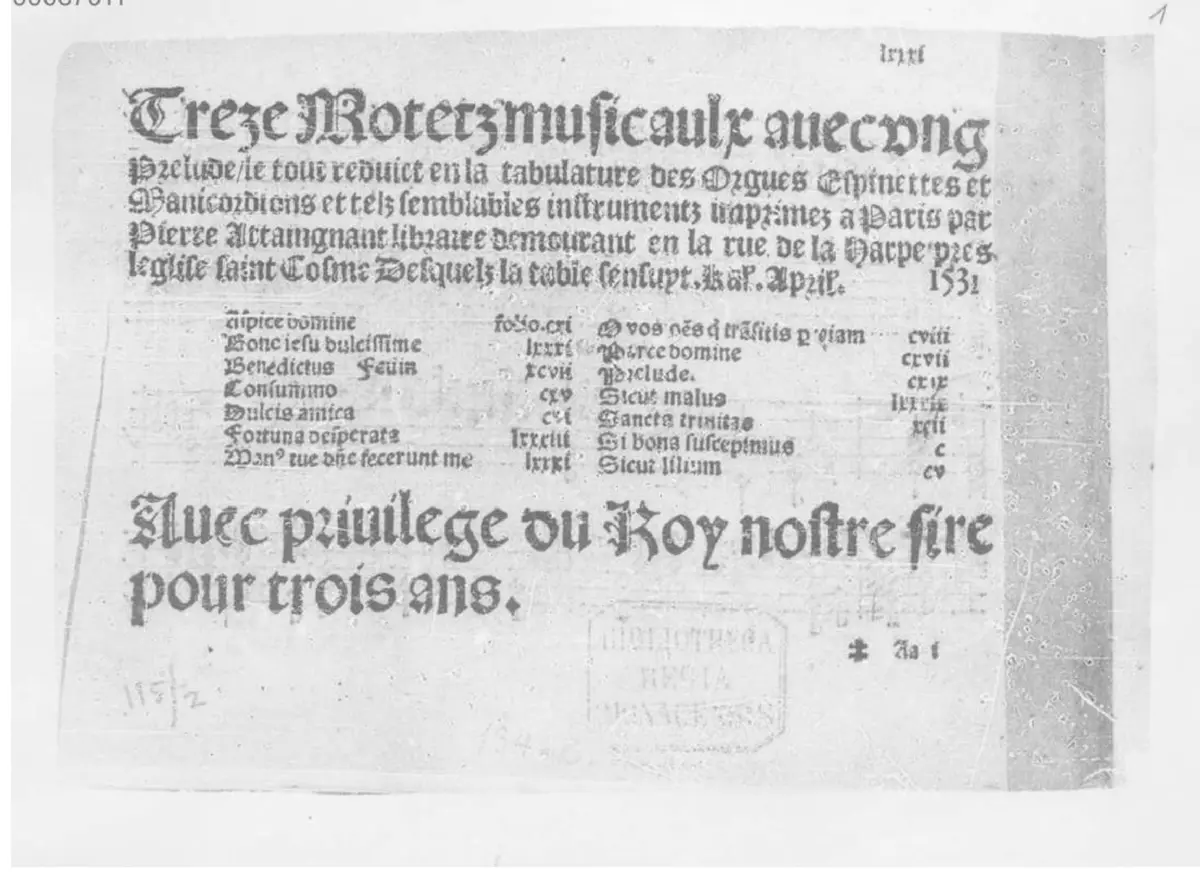 1
lxxxi
Treze Motetz musicaulx auec vng
Prelude/le tout reduict en la tabulature des Orgues Espinettes et
Manicordions et telz semblables instrumentz imprimez a Paris par
Pierre Attaingnant libraire demourant en la rue de la Harpe pres
leglise saint Cosme Desquelz la table sensuyt. Kal. April. 1531
Aspice domine folio.cxi
Bone iesu dulcissime lxxxi
Benedictus Feuin xcvii
Consummo cxv
Dulcis amica cxi
Fortuna desperata lxxxiii
Manꝰ tue dñe fecerunt me lxxxi
O vos oẽs q̃ trãsitis p viam cviii
Parce domine cxvii
Prelude. cxix
Sicut malus lxxxix
Sancta trinitas xcii
Si bona suscepimus c
Sicut lilium cv
Auec priuilege du Roy nostre sire
pour trois ans.
‡ Aa i
BIBLIOTHECA
REGIA
MONACENSIS